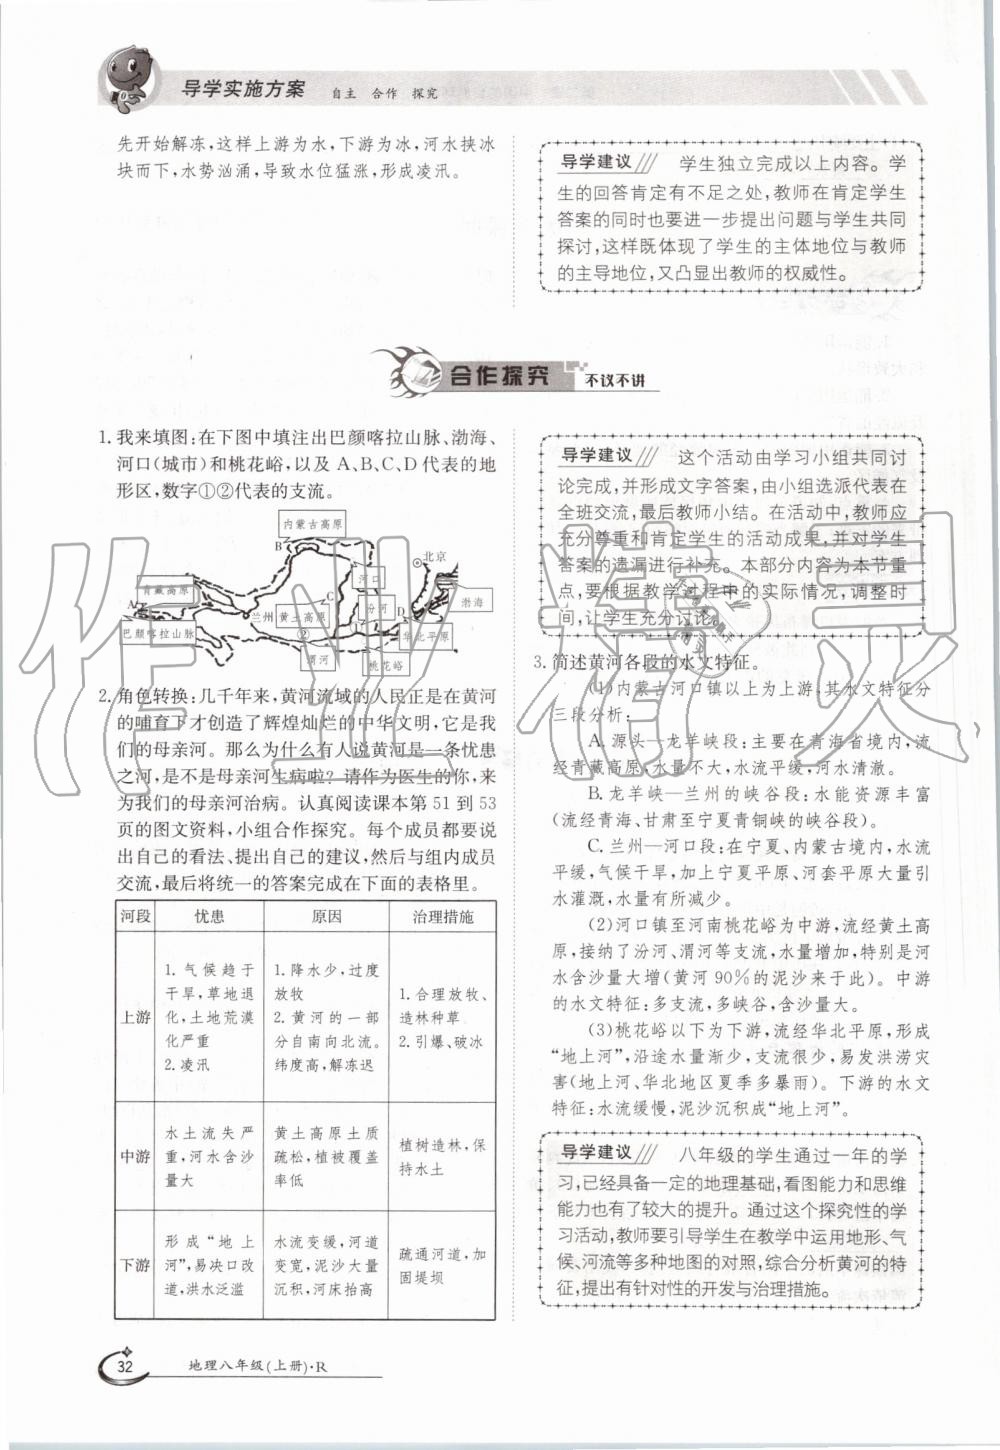 导学实施方案 自主 合作 探究
先开始解冻，这样上游为水，下游为冰，河水挟冰
块而下，水势汹涌，导致水位猛涨，形成凌汛。
导学建议 学生独立完成以上内容。学
生的回答肯定有不足之处，教师在肯定学生
答案的同时也要进一步提出问题与学生共同
探讨，这样既体现了学生的主体地位与教师
的主导地位，又凸显出教师的权威性。
合作探究 不议不讲
1. 我来填图：在下图中填注出巴颜喀拉山脉、渤海、
河口(城市)和桃花峪，以及 A、B、C、D 代表的地
形区，数字①②代表的支流。
内蒙古高原
B
北京
河口
青藏高原
渤海
汾河
A
兰州
黄土高原
C
①
D
②
巴颜喀拉山脉
华北平原
渭河
桃花峪
2. 角色转换：几千年来，黄河流域的人民正是在黄河
的哺育下才创造了辉煌灿烂的中华文明，它是我
们的母亲河。那么为什么有人说黄河是一条忧患
之河，是不是母亲河生病啦？请作为医生的你，来
为我们的母亲河治病。认真阅读课本第 51 到 53
页的图文资料，小组合作探究。每个成员都要说
出自己的看法、提出自己的建议，然后与组内成员
交流，最后将统一的答案完成在下面的表格里。
河段 忧患 原因 治理措施
上游
1. 气候趋于
干旱，草地退
化，土地荒漠
化严重
2. 凌汛
1. 降水少，过度
放牧
2. 黄河的一部
分自南向北流。
纬度高，解冻迟
1. 合理放牧、
造林种草
2. 引爆、破冰
中游
水土流失严
重，河水含沙
量大
黄土高原土质
疏松，植被覆盖
率低
植树造林，保
持水土
下游
形成“地上
河”，易决口改
道，洪水泛滥
水流变缓，河道
变宽，泥沙大量
沉积，河床抬高
疏通河道，加
固堤坝
导学建议 这个活动由学习小组共同讨
论完成，并形成文字答案，由小组选派代表在
全班交流，最后教师小结。在活动中，教师应
充分尊重和肯定学生的活动成果，并对学生
答案的遗漏进行补充。本部分内容为本节重
点，要根据教学过程中的实际情况，调整时
间，让学生充分讨论。
3. 简述黄河各段的水文特征。
(1)内蒙古河口镇以上为上游，其水文特征分
三段分析：
A. 源头—龙羊峡段：主要在青海省境内，流
经青藏高原，水量不大，水流平缓，河水清澈。
B. 龙羊峡—兰州的峡谷段：水能资源丰富
(流经青海、甘肃至宁夏青铜峡的峡谷段)。
C. 兰州—河口段：在宁夏、内蒙古境内，水流
平缓，气候干旱，加上宁夏平原、河套平原大量引
水灌溉，水量有所减少。
(2)河口镇至河南桃花峪为中游，流经黄土高
原，接纳了汾河、渭河等支流，水量增加，特别是河
水含沙量大增(黄河 90%的泥沙来于此)。中游
的水文特征：多支流，多峡谷，含沙量大。
(3)桃花峪以下为下游，流经华北平原，形成
“地上河”，沿途水量渐少，支流很少，易发洪涝灾
害(地上河、华北地区夏季多暴雨)。下游的水文
特征：水流缓慢，泥沙沉积成“地上河”。
导学建议 八年级的学生通过一年的学
习，已经具备一定的地理基础，看图能力和思维
能力也有了较大的提升。通过这个探究性的学
习活动，教师要引导学生在教学中运用地形、气
候、河流等多种地图的对照，综合分析黄河的特
征，提出有针对性的开发与治理措施。
32 地理八年级(上册)·R
作业精灵